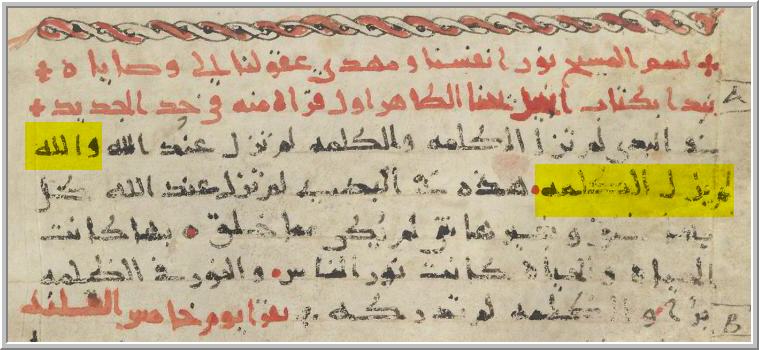 بسم المسيح نور انفسنا ومهدي عقولنا الى وصاياه
نبدا بكتاب انجيل يحنا الطاهر اول قراه منه في حد الجديد
A
في البدي لم تزل الكلمه والكلمه لم تزل عند الله والله
لم يزل الكلمه هذه في البدي لم تزل عند الله كل
وبغير هاتي لم يكن مما خلق بها كانت
الحياه والحياه كانت نور الناس والنور في الظلمه
والظلمه لم تدركه يقرا يوم خامس
B